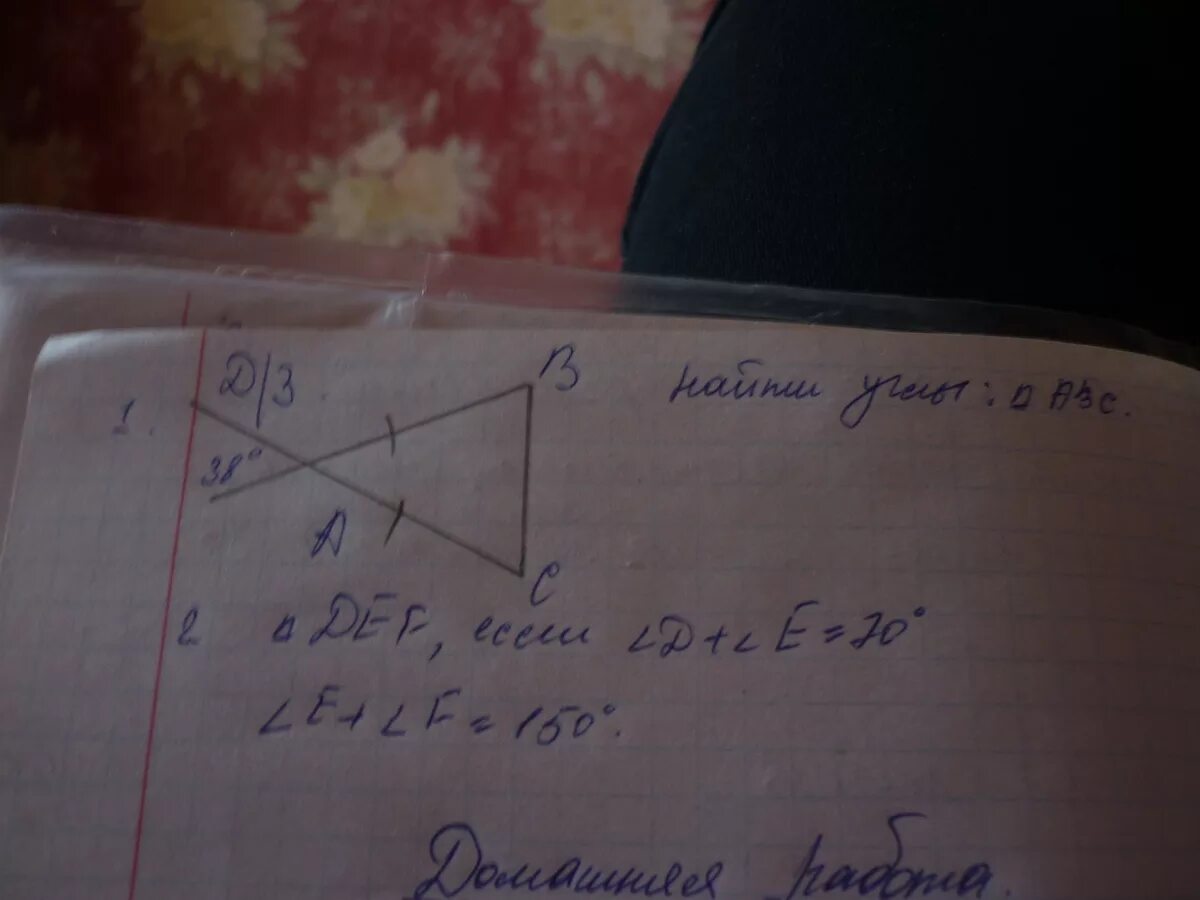 Д/З.
1.
B
найти углы: △ АВС.
38°
A
C
2 △ DEF, если ∠D+∠E=70°
∠E+∠F=150°.
Домашняя работа.